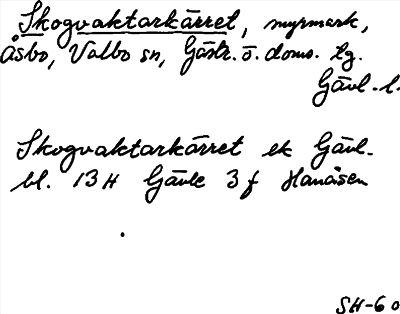 Skogvaktarkärret, myrmark,
Åsbo, Valbo sn, Gästr. ö. doms. tg.
Gävl. l.
Skogvaktarkärret ek Gävl.
bl. 13H Gävle 3 f Hanåsen
SH-60